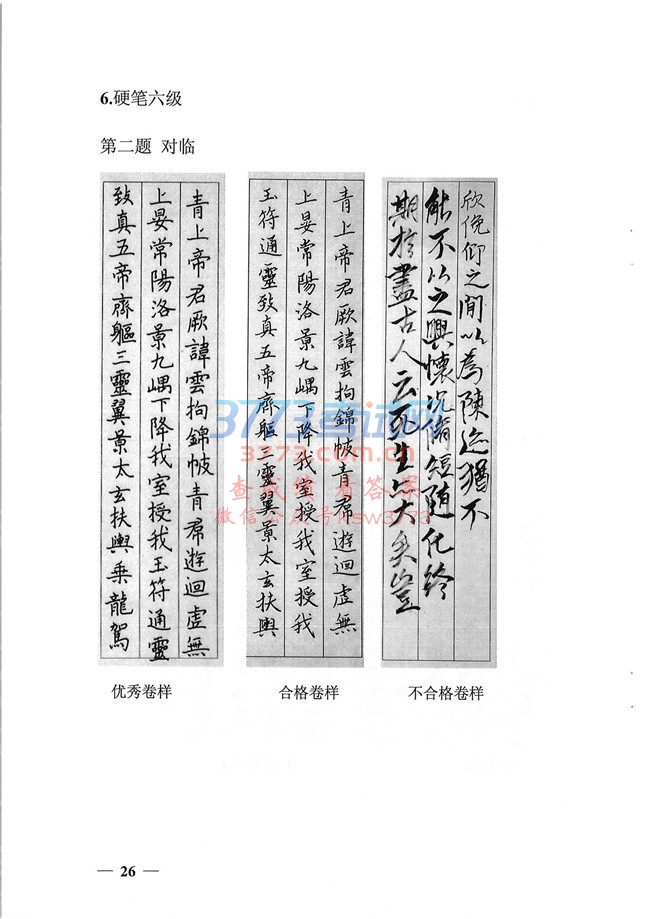 6.硬笔六级
第二题 对临
青上帝君厥諱雲拘錦帔青帬遊迴虚無
上晏常陽洛景九嵎下降我室授我玉符通靈
致真五帝齊軀三靈翼景太玄扶輿乗龍駕
青上帝君厥諱雲拘錦帔青帬遊迴虚無
上晏常陽洛景九嵎下降我室授我
玉符通靈致真五帝齊軀三靈翼景太玄扶輿
欣俛仰之間以為陳迹猶不
能不以之興懷況脩短随化終
期於盡古人云死生亦大矣豈
优秀卷样
合格卷样
不合格卷样
3773考试网
3773.com.cn
查成绩 看答案
微信公众号:ksw3773
— 26 —